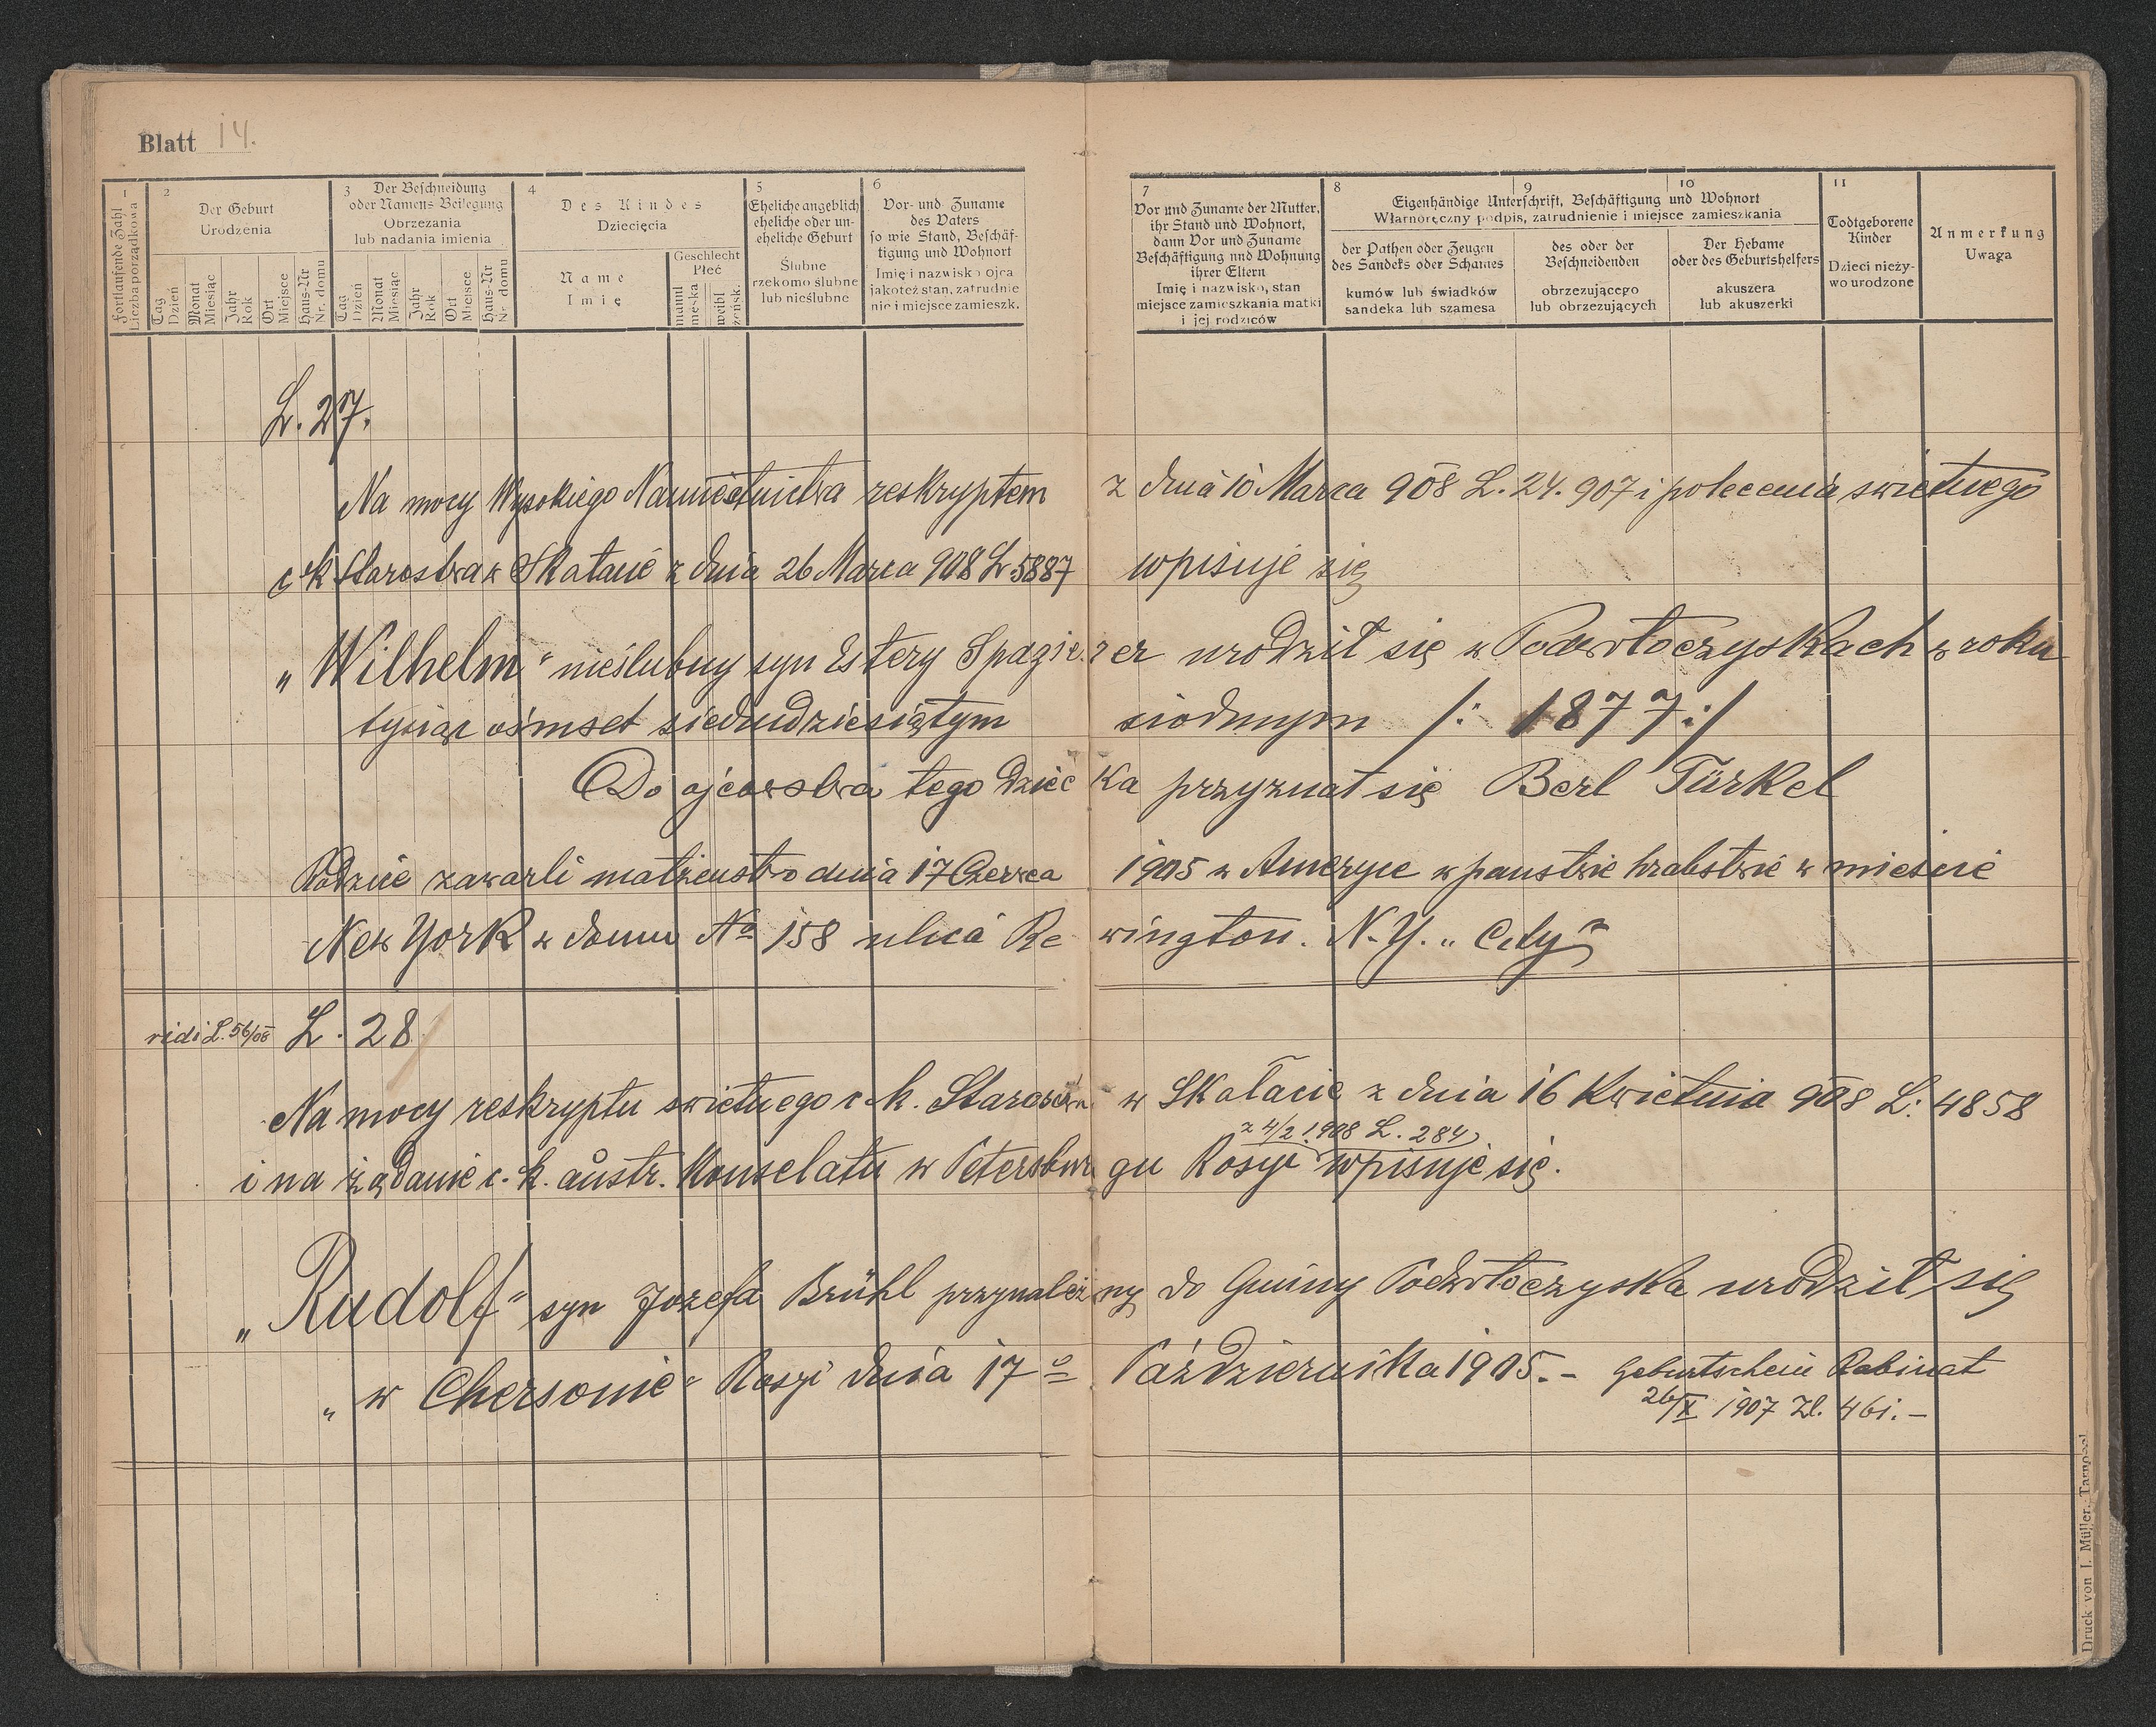 Blatt 14.
1
Fortlaufende Zahl
Liczba porządkowa
2
Der Geburt
Urodzenia
Tag
Dzień
Monat
Miesiąc
Jahr
Rok
Ort
Miejsce
Haus-Nr
Nr. domu
3
Der Beschneidung
oder Namens Beilegung
Obrzezania
lub nadania imienia
Tag
Dzień
Monat
Miesiąc
Jahr
Rok
Ort
Miejsce
Haus-Nr
Nr domu
4
Des Kindes
Dziecięcia
Name
Imię
Geschlecht
Płeć
männl
męska
weibl
żeńsk.
5
Eheliche angeblich
eheliche oder un-
eheliche Geburt
Ślubne
rzekomo ślubne
lub nieślubne
6
Vor- und Zuname
des Vaters
so wie Stand, Beschäf-
tigung und Wohnort
Imię i nazwisko ojca
jakoteż stan, zatrudnie
nie i miejsce zamieszk.
7
Vor und Zuname der Mutter,
ihr Stand und Wohnort,
dann Vor und Zuname
Beschäftigung und Wohnung
ihrer Eltern
Imię i nazwisko, stan
miejsce zamieszkania matki
i jej rodziców
8
9
10
Eigenhändige Unterschrift, Beschäftigung und Wohnort
Własnoręczny podpis, zatrudnienie i miejsce zamieszkania
der Pathen oder Zeugen
des Sandeks oder Schames
kumów lub świadków
sandeka lub szamesa
des oder der
Beschneidenden
obrzezującego
lub obrzezujących
Der Hebame
oder des Geburtshelfers
akuszera
lub akuszerki
11
Todtgeborene
Kinder
Dzieci nieży-
wo urodzone
Anmerkung
Uwaga
L. 27.
Na mocy Wysokiego Namiestnictwa reskryptem z dnia 10 Marca 908 L. 24.907 i polecenia swietnego
c k Starostwa w Skałacie z dnia 26 Marca 908 L 5887 wpisuje się
„Wilhelm“ nieślubny syn Estery Spazierer urodził się w Podwołoczyskach w roku
tysiąc ośmset siedmdziesiątym siodmym /: 1877 :/
Do ojcowstwa tego dziecka przyznał się Berl Türkel
Rodzice zawarli małżeństwo dnia 17 Czerwca 1905 w Ameryce w państwie hrabstwie w mieście
New York w domu No 158 ulica Rewington. N.Y. „City“
vidi L. 56/08 L. 28
Na mocy reskryptu swietnego c k. Starostwa w Skałacie z dnia 16 Kwietnia 908 L: 4858
z 4/2 1908 L. 284
i na żądanie c. k. austr. Konselatu w Petersburgu Rosyi wpisuje się.
„Rudolf“ syn Jozefa Brühl przynależny do Gminy Podwołoczyska urodził się
„w Chersonie“ Rosyi dnia 17o Października 1905. – Geburtschein Rabinat
26/X 1907 Zl. 461. –
Druck von J. Müller, Tarnopol